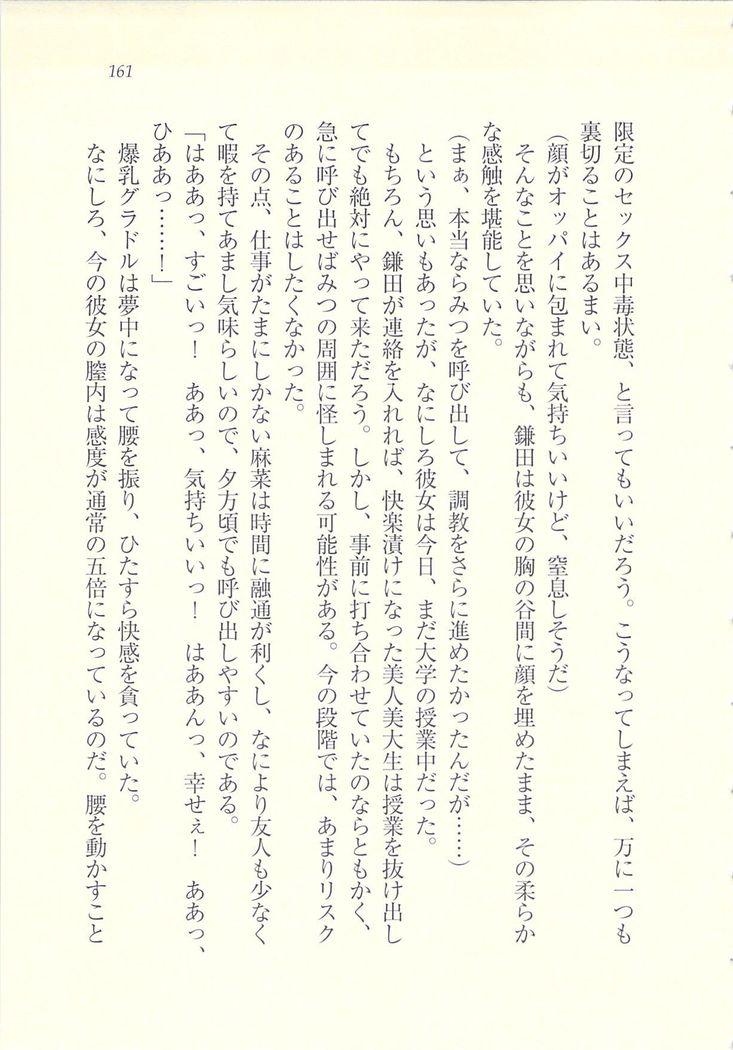 161
限定のセックス中毒状態、と言ってもいいだろう。こうなってしまえば、万に一つも
裏切ることはあるまい。
(顔がオッパイに包まれて気持ちいいけど、窒息しそうだ)
そんなことを思いながらも、鎌田は彼女の胸の谷間に顔を埋めたまま、その柔らか
な感触を堪能していた。
(まぁ、本当ならみつを呼び出して、調教をさらに進めたかったんだが……)
という思いもあったが、なにしろ彼女は今日、まだ大学の授業中だった。
もちろん、鎌田が連絡を入れれば、快楽漬けになった美人美大生は授業を抜け出し
てでも絶対にやって来ただろう。しかし、事前に打ち合わせていたのならともかく、
急に呼び出せばみつの周囲に怪しまれる可能性がある。今の段階では、あまりリスク
のあることはしたくなかった。
その点、仕事がたまにしかない麻菜は時間に融通が利くし、なにより友人も少なく
て暇を持てあまし気味らしいので、夕方頃でも呼び出しやすいのである。
「はああっ、すごいっ! ああっ、気持ちいいっ! はああんっ、幸せぇ! ああっ、
ひああっ……!」
爆乳グラドルは夢中になって腰を振り、ひたすら快感を貪っていた。
なにしろ、今の彼女の膣内は感度が通常の五倍になっているのだ。腰を動かすこと